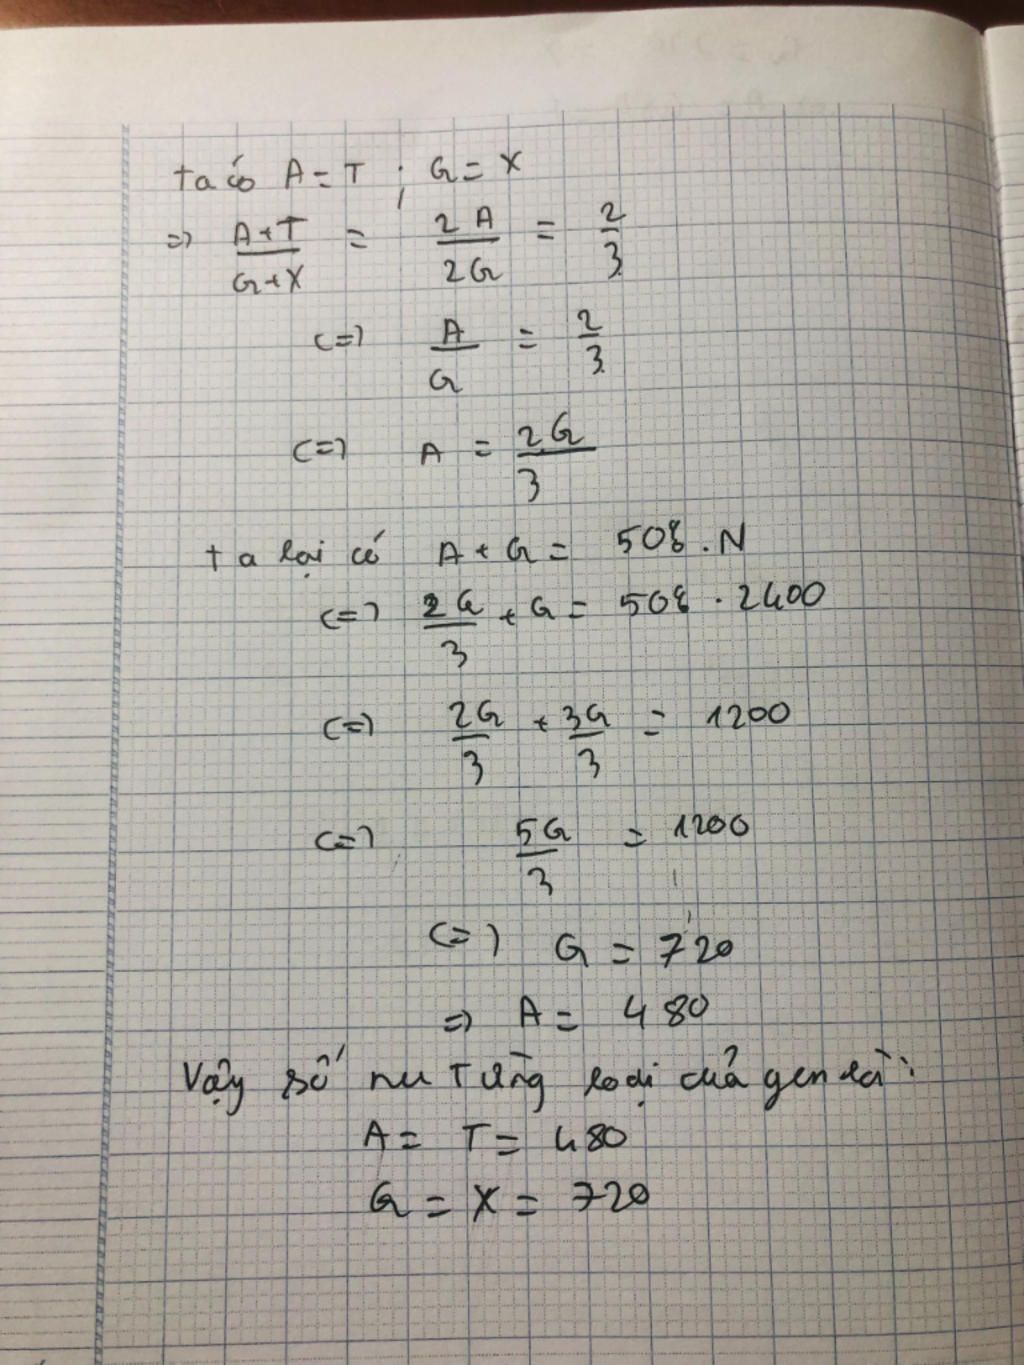 ta có A = T ; G = X
=> A+T / G+X = 2A / 2G = 2 / 3
<=> A / G = 2 / 3
<=> A = 2G / 3
ta lại có A + G = 50% . N
<=> 2G / 3 + G = 50% . 2400
<=> 2G / 3 + 3G / 3 = 1200
<=> 5G / 3 = 1200
<=> G = 720
=> A = 480
Vậy số nu Từng loại của gen là:
A = T = 480
G = X = 720